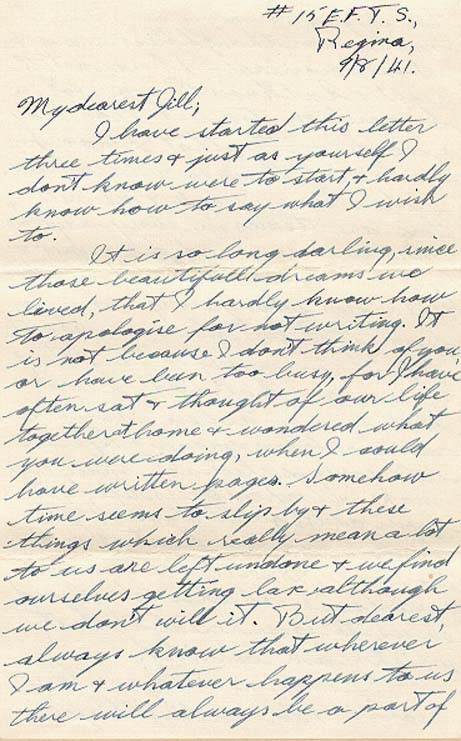 # 15 E.F.T.S.,
Regina,
9/8/41.
My dearest Jill;
I have started this letter
three times & just as yourself I
don't know were to start, & hardly
know how to say what I wish
to.
It is so long darling, since
those beautifull dreams we
lived, that I hardly know how
to apologise for not writing. It
is not because I don't think of you,
or have been too busy, for I have
often sat & thought of our life
together at home & wondered what
you were doing, when I could
have written pages. Somehow
time seems to slip by & these
things which really mean a lot
to us are left undone & we find
ourselves getting lax although
we don't will it. But dearest,
always know that wherever
I am & whatever happens to us
there will always be a part of